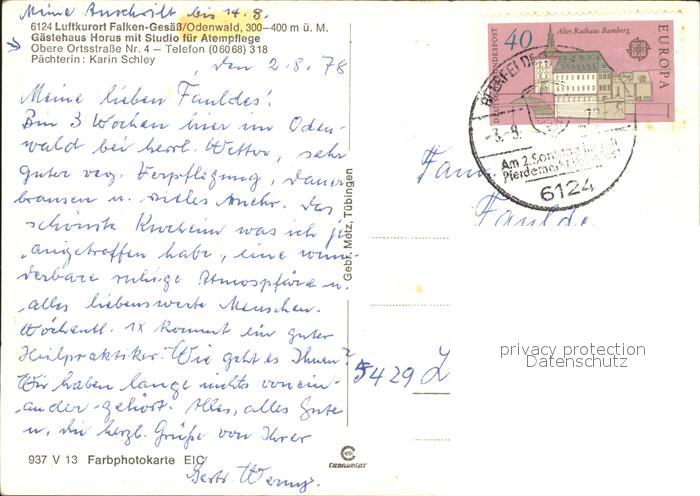 Meine Anschrift bis 14.8.
6124 Luftkurort Falken-Gesäß/Odenwald, 300–400 m ü. M.
Gästehaus Horus mit Studio für Atempflege
Obere Ortsstraße Nr. 4 – Telefon (06068) 318
Pächterin: Karin Schley
, den 2.8.78
Meine lieben Fauldes!
Bin 3 Wochen hier im Oden-
wald bei herrl. Wetter, sehr
guter veg. Verpflegung, Dauer
brausen u. vieles mehr. Das
schönste Kurheim was ich je
angetroffen habe, eine wun-
derbare ruhige Atmosphäre u.
alles liebenswerte Menschen.
Wöchentl. 1x kommt ein guter
Heilpraktiker. Wie geht es Ihnen?
Wir haben lange nichts vonein-
ander gehört. Alles, alles Gute
u. die herzl. Grüße von Ihrer
Gertr.
937 V 13 Farbphotokarte EIC
Gebr. Metz, Tübingen
DEUTSCHE BUNDESPOST
40
Altes Rathaus Bamberg
EUROPA
CEPT
BEERFELDEN
-3.-8.
Am 2. Sonntag im Juli
Pferdemarkt
6124
Fam
Faulde
5429 L
privacy protection
Datenschutz